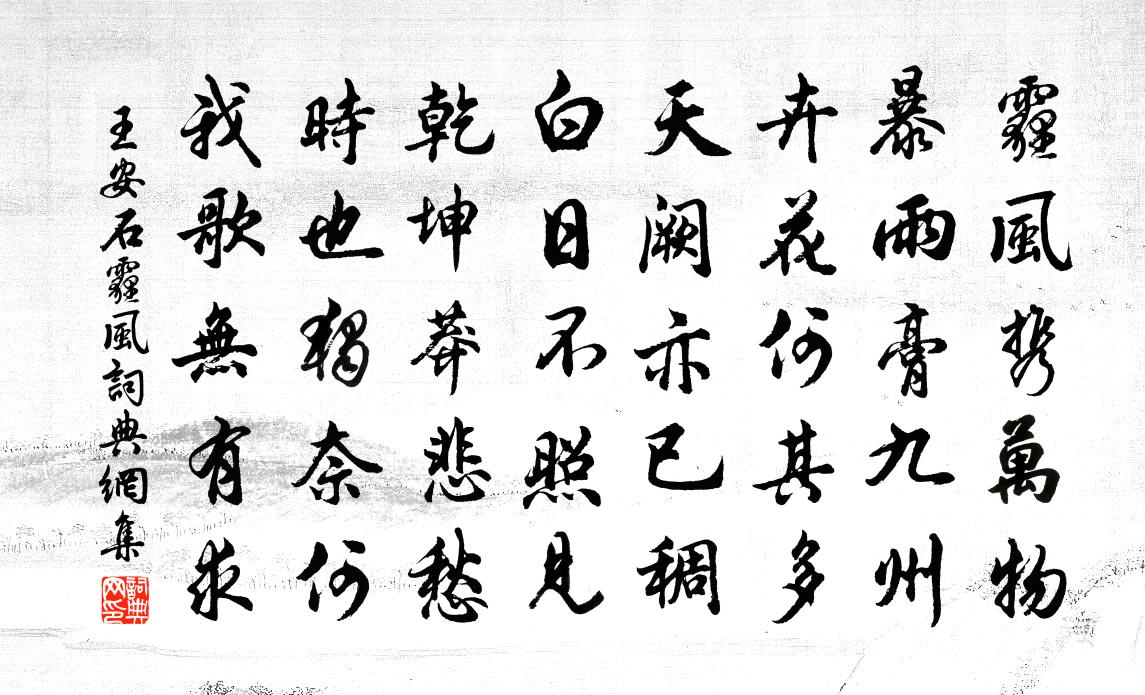 霾風携萬物
暴雨膏九州
卉花何其多
天闕亦已稠
白日不照見
乾坤莽悲愁
時也獨奈何
我歌無有求
王安石霾風詞典網集
詞典网印